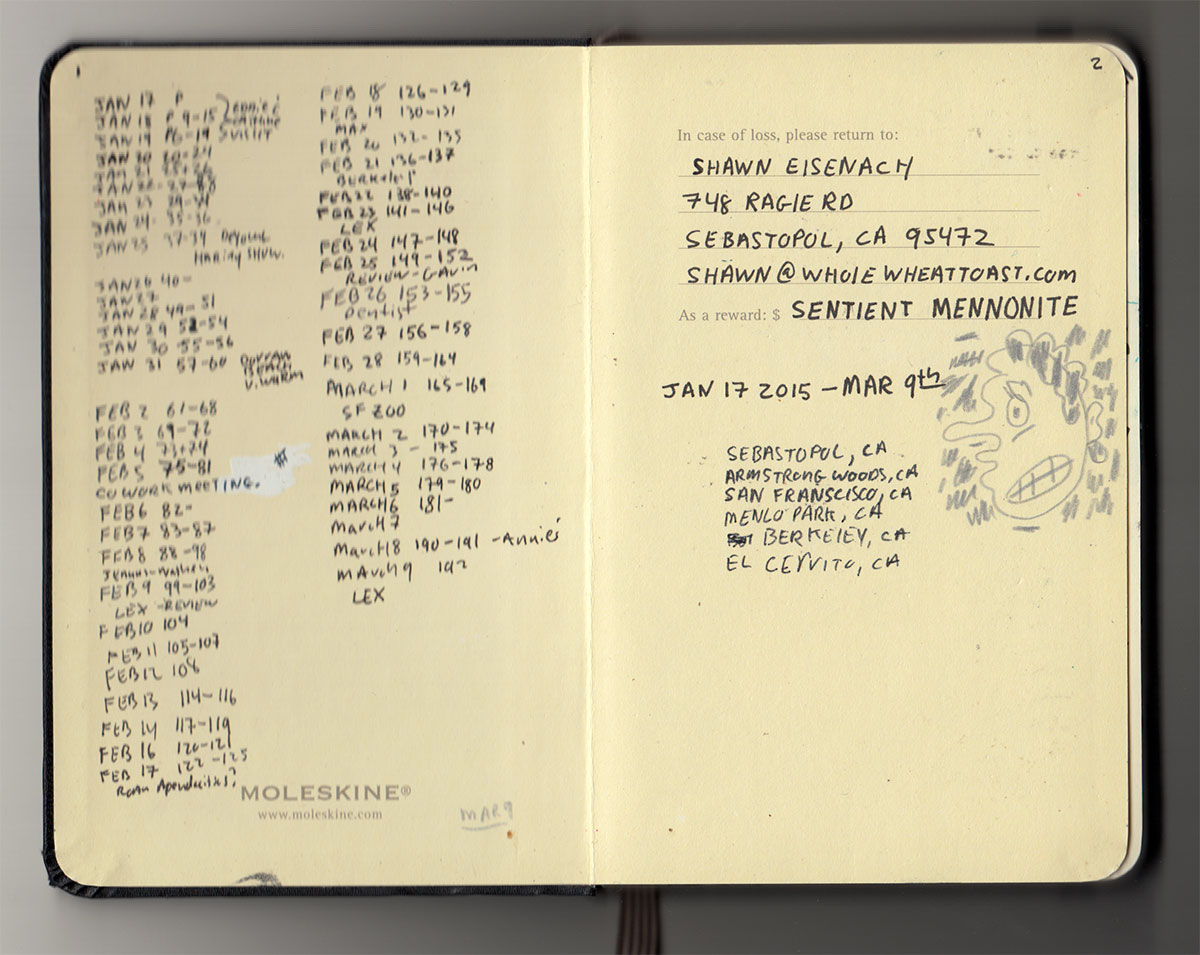 1
JAN 17 P
JAN 18 P 9-15
JAN 19 P6-19
JAN 20 20-24
JAN 21 25-26
JAN 22
JAN 23 29-34
JAN 24 35-36
JAN 25 37-39 DEYOUNG
SHOW.
JAN 26 40-
JAN 27
JAN 28 49-51
JAN 29 52-54
JAN 30 55-56
JAN 31 57-60 DORRAN
BEACH
V. WARM
FEB 2 61-68
FEB 3 69-72
FEB 4 73+74
FEB 5 75-81
COWORK MEETING.
FEB 6 82-
FEB 7 83-87
FEB 8 88-98
FEB 9 99-103
LEX -REVIEW
FEB 10 104
FEB 11 105-107
FEB 12 108
FEB 13 114-116
FEB 14 117-119
FEB 16 120-121
FEB 17 122-125
FEB 18 126-129
FEB 19 130-131
MAX
FEB 20 132-135
FEB 21 136-137
BERKELEY
FEB 22 138-140
FEB 23 141-146
LEX
FEB 24 147-148
FEB 25 149-152
REVIEW-GAVIN
FEB 26 153-155
Dentist
FEB 27 156-158
FEB 28 159-164
MARCH 1 165-169
SF ZOO
MARCH 2 170-174
MARCH 3 - 175
MARCH 4 176-178
MARCH 5 179-180
MARCH 6 181-
March 7
March 8 190-191 -Annies'
MArch 9 192
LEX
MOLESKINE®
www.moleskine.com
MAR 9
2
In case of loss, please return to:
SHAWN EISENACH
748 RAGLE RD
SEBASTOPOL, CA 95472
SHAWN@WHOLEWHEATTOAST.com
As a reward: $ SENTIENT MENNONITE
JAN 17 2015 - MAR 9th
SEBASTOPOL, CA
ARMSTRONG WOODS, CA
SAN FRANSCISCO, CA
MENLO PARK, CA
BERKELEY, CA
EL CERRITO, CA